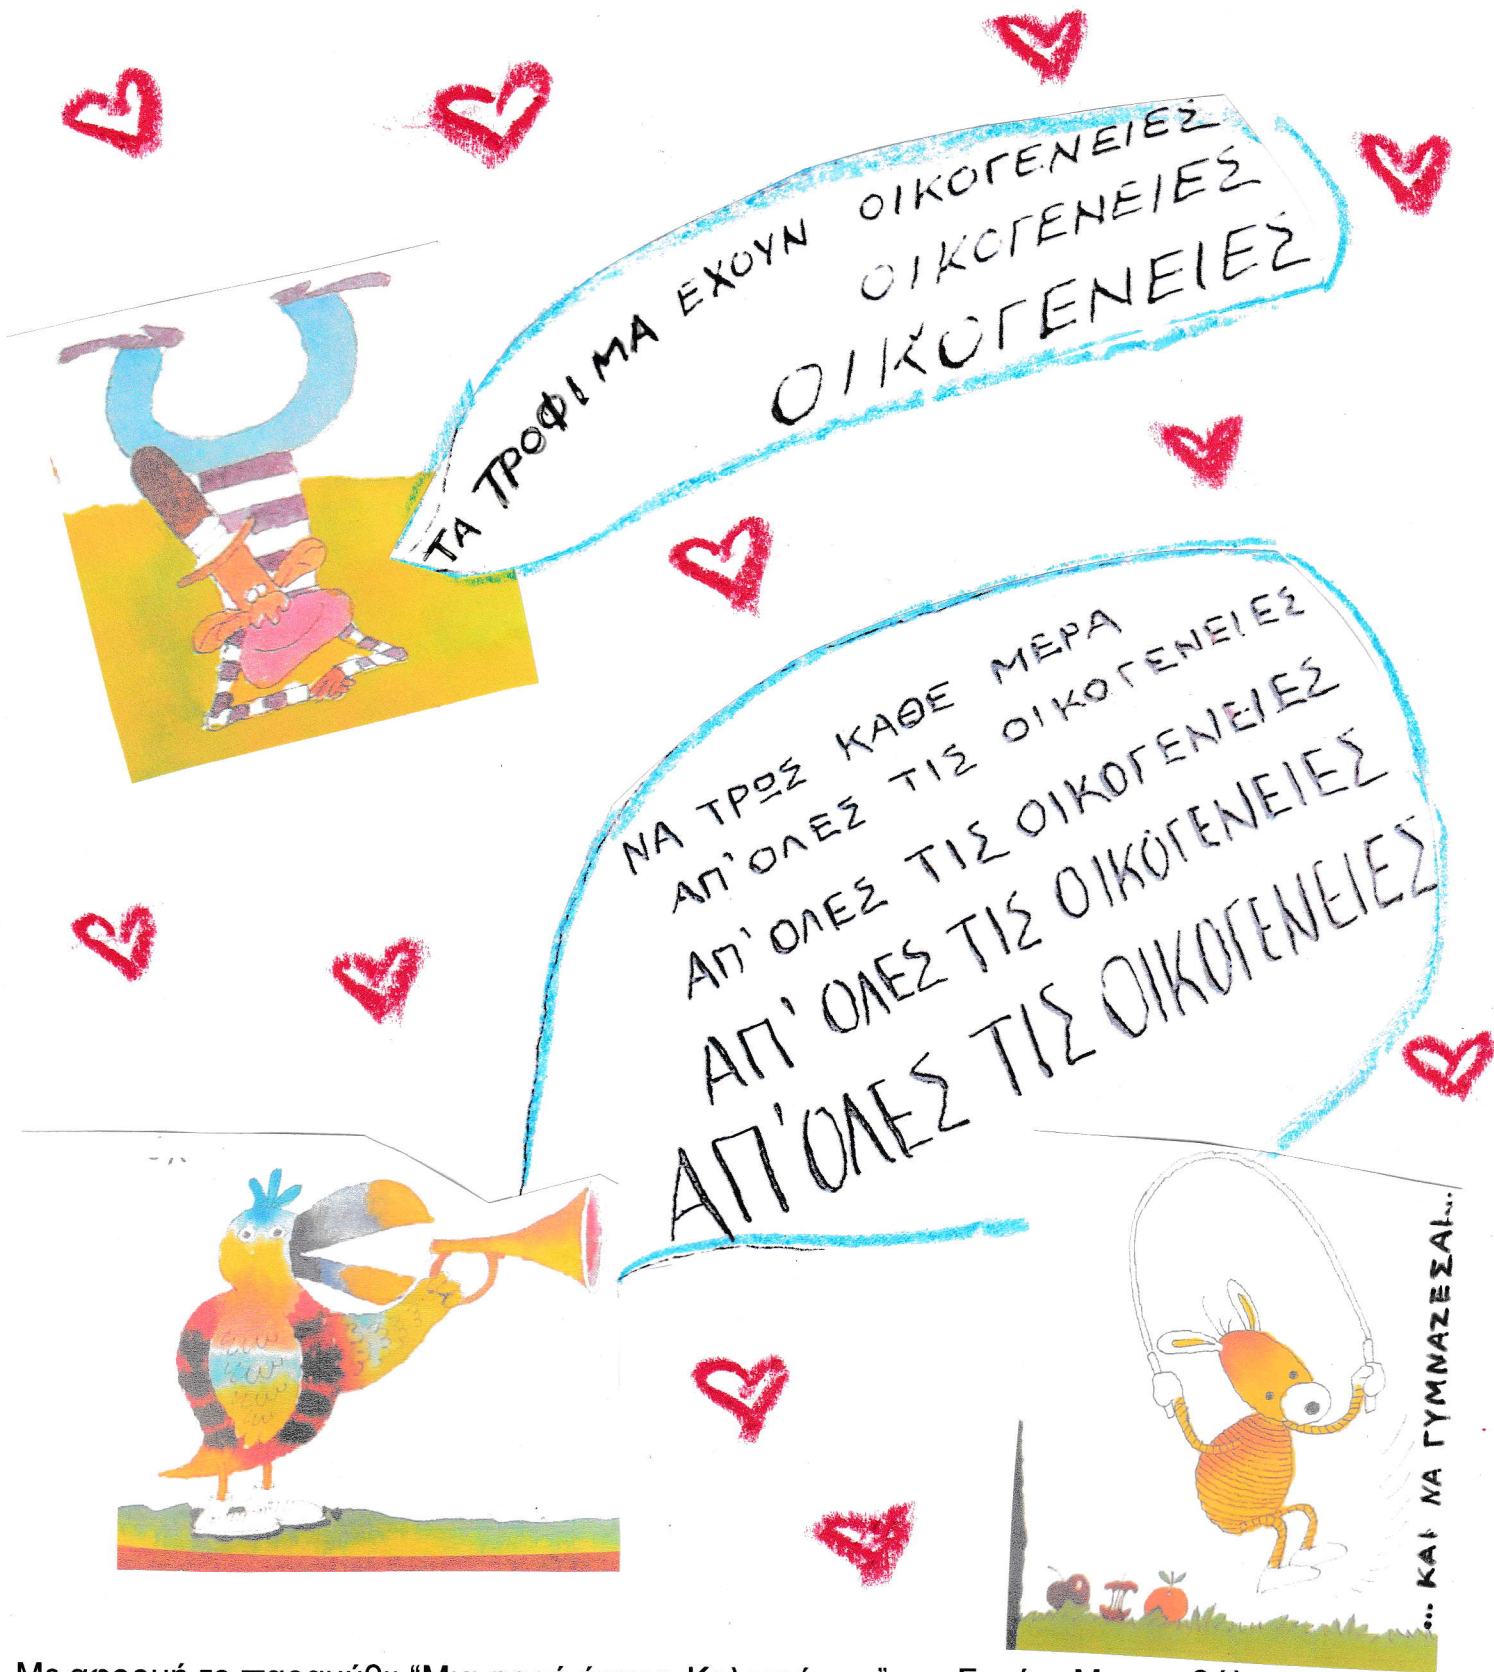 ΤΑ ΤΡΟΦΙΜΑ ΕΧΟΥΝ ΟΙΚΟΓΕΝΕΙΕΣ
ΟΙΚΟΓΕΝΕΙΕΣ
ΟΙΚΟΓΕΝΕΙΕΣ
ΝΑ ΤΡΩΣ ΚΑΘΕ ΜΕΡΑ
ΑΠ' ΟΛΕΣ ΤΙΣ ΟΙΚΟΓΕΝΕΙΕΣ
ΑΠ' ΟΛΕΣ ΤΙΣ ΟΙΚΟΓΕΝΕΙΕΣ
ΑΠ' ΟΛΕΣ ΤΙΣ ΟΙΚΟΓΕΝΕΙΕΣ
ΑΠ' ΟΛΕΣ ΤΙΣ ΟΙΚΟΓΕΝΕΙΕΣ
... ΚΑΙ ΝΑ ΓΥΜΝΑΖΕΣΑΙ...
Με αφορμή το παραμύθι